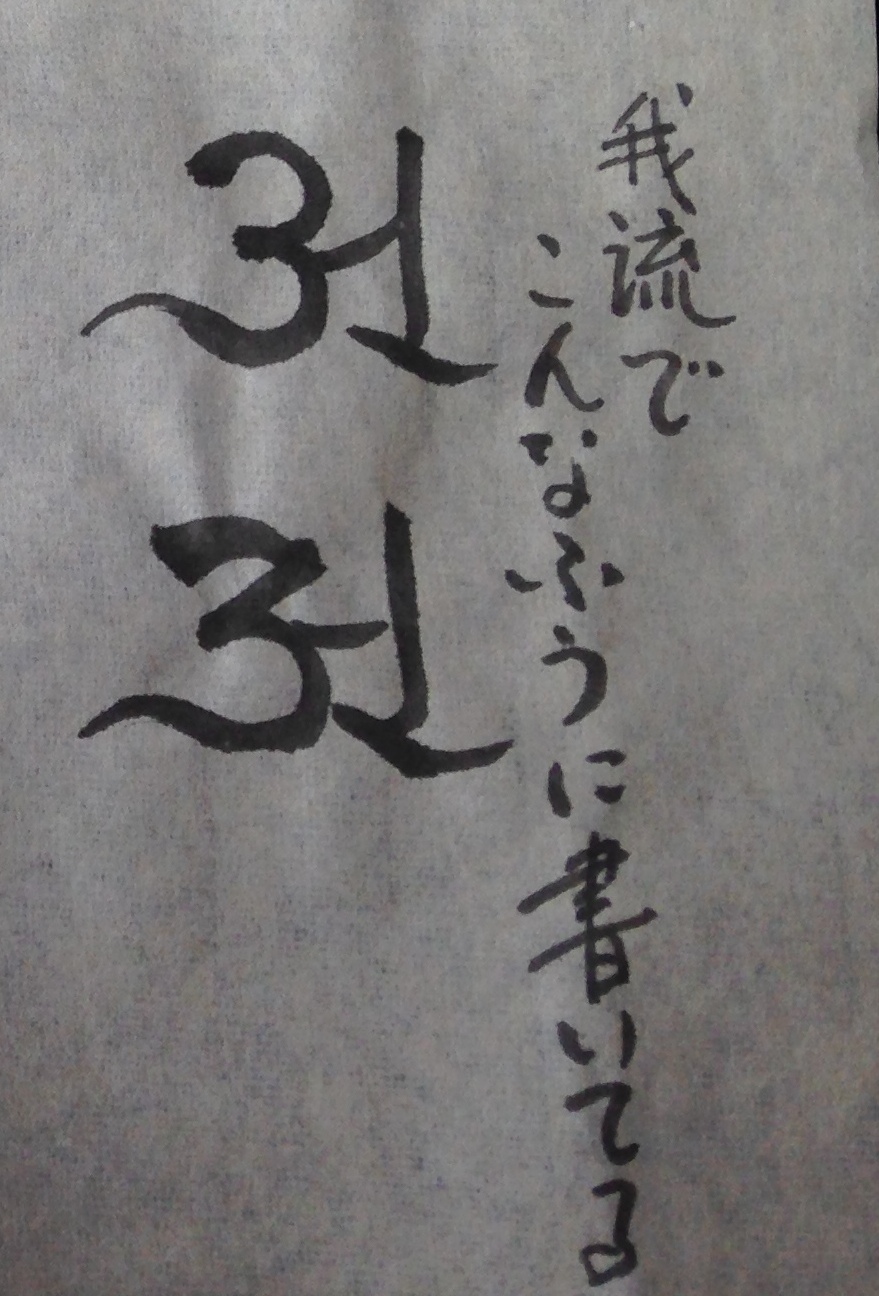 我流で
こんなふうに書いてる
𑖀
𑖀